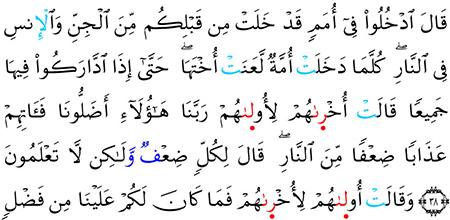 قَالَ ٱدۡخُلُواْ فِيٓ أُمَمٖ قَدۡ خَلَتۡ مِن قَبۡلِكُم مِّنَ ٱلۡجِنِّ وَٱلۡإِنسِ
فِي ٱلنَّارِۖ كُلَّمَا دَخَلَتۡ أُمَّةٞ لَّعَنَتۡ أُخۡتَهَاۖ حَتَّىٰٓ إِذَا ٱدَّارَكُواْ فِيهَا
جَمِيعٗا قَالَتۡ أُخۡرَىٰهُمۡ لِأُولَىٰهُمۡ رَبَّنَا هَٰٓؤُلَآءِ أَضَلُّونَا فَـَٔاتِهِمۡ
عَذَابٗا ضِعۡفٗا مِّنَ ٱلنَّارِۖ قَالَ لِكُلّٖ ضِعۡفٞ وَلَٰكِن لَّا تَعۡلَمُونَ
٣٨ وَقَالَتۡ أُولَىٰهُمۡ لِأُخۡرَىٰهُمۡ فَمَا كَانَ لَكُمۡ عَلَيۡنَا مِن فَضۡلٖ